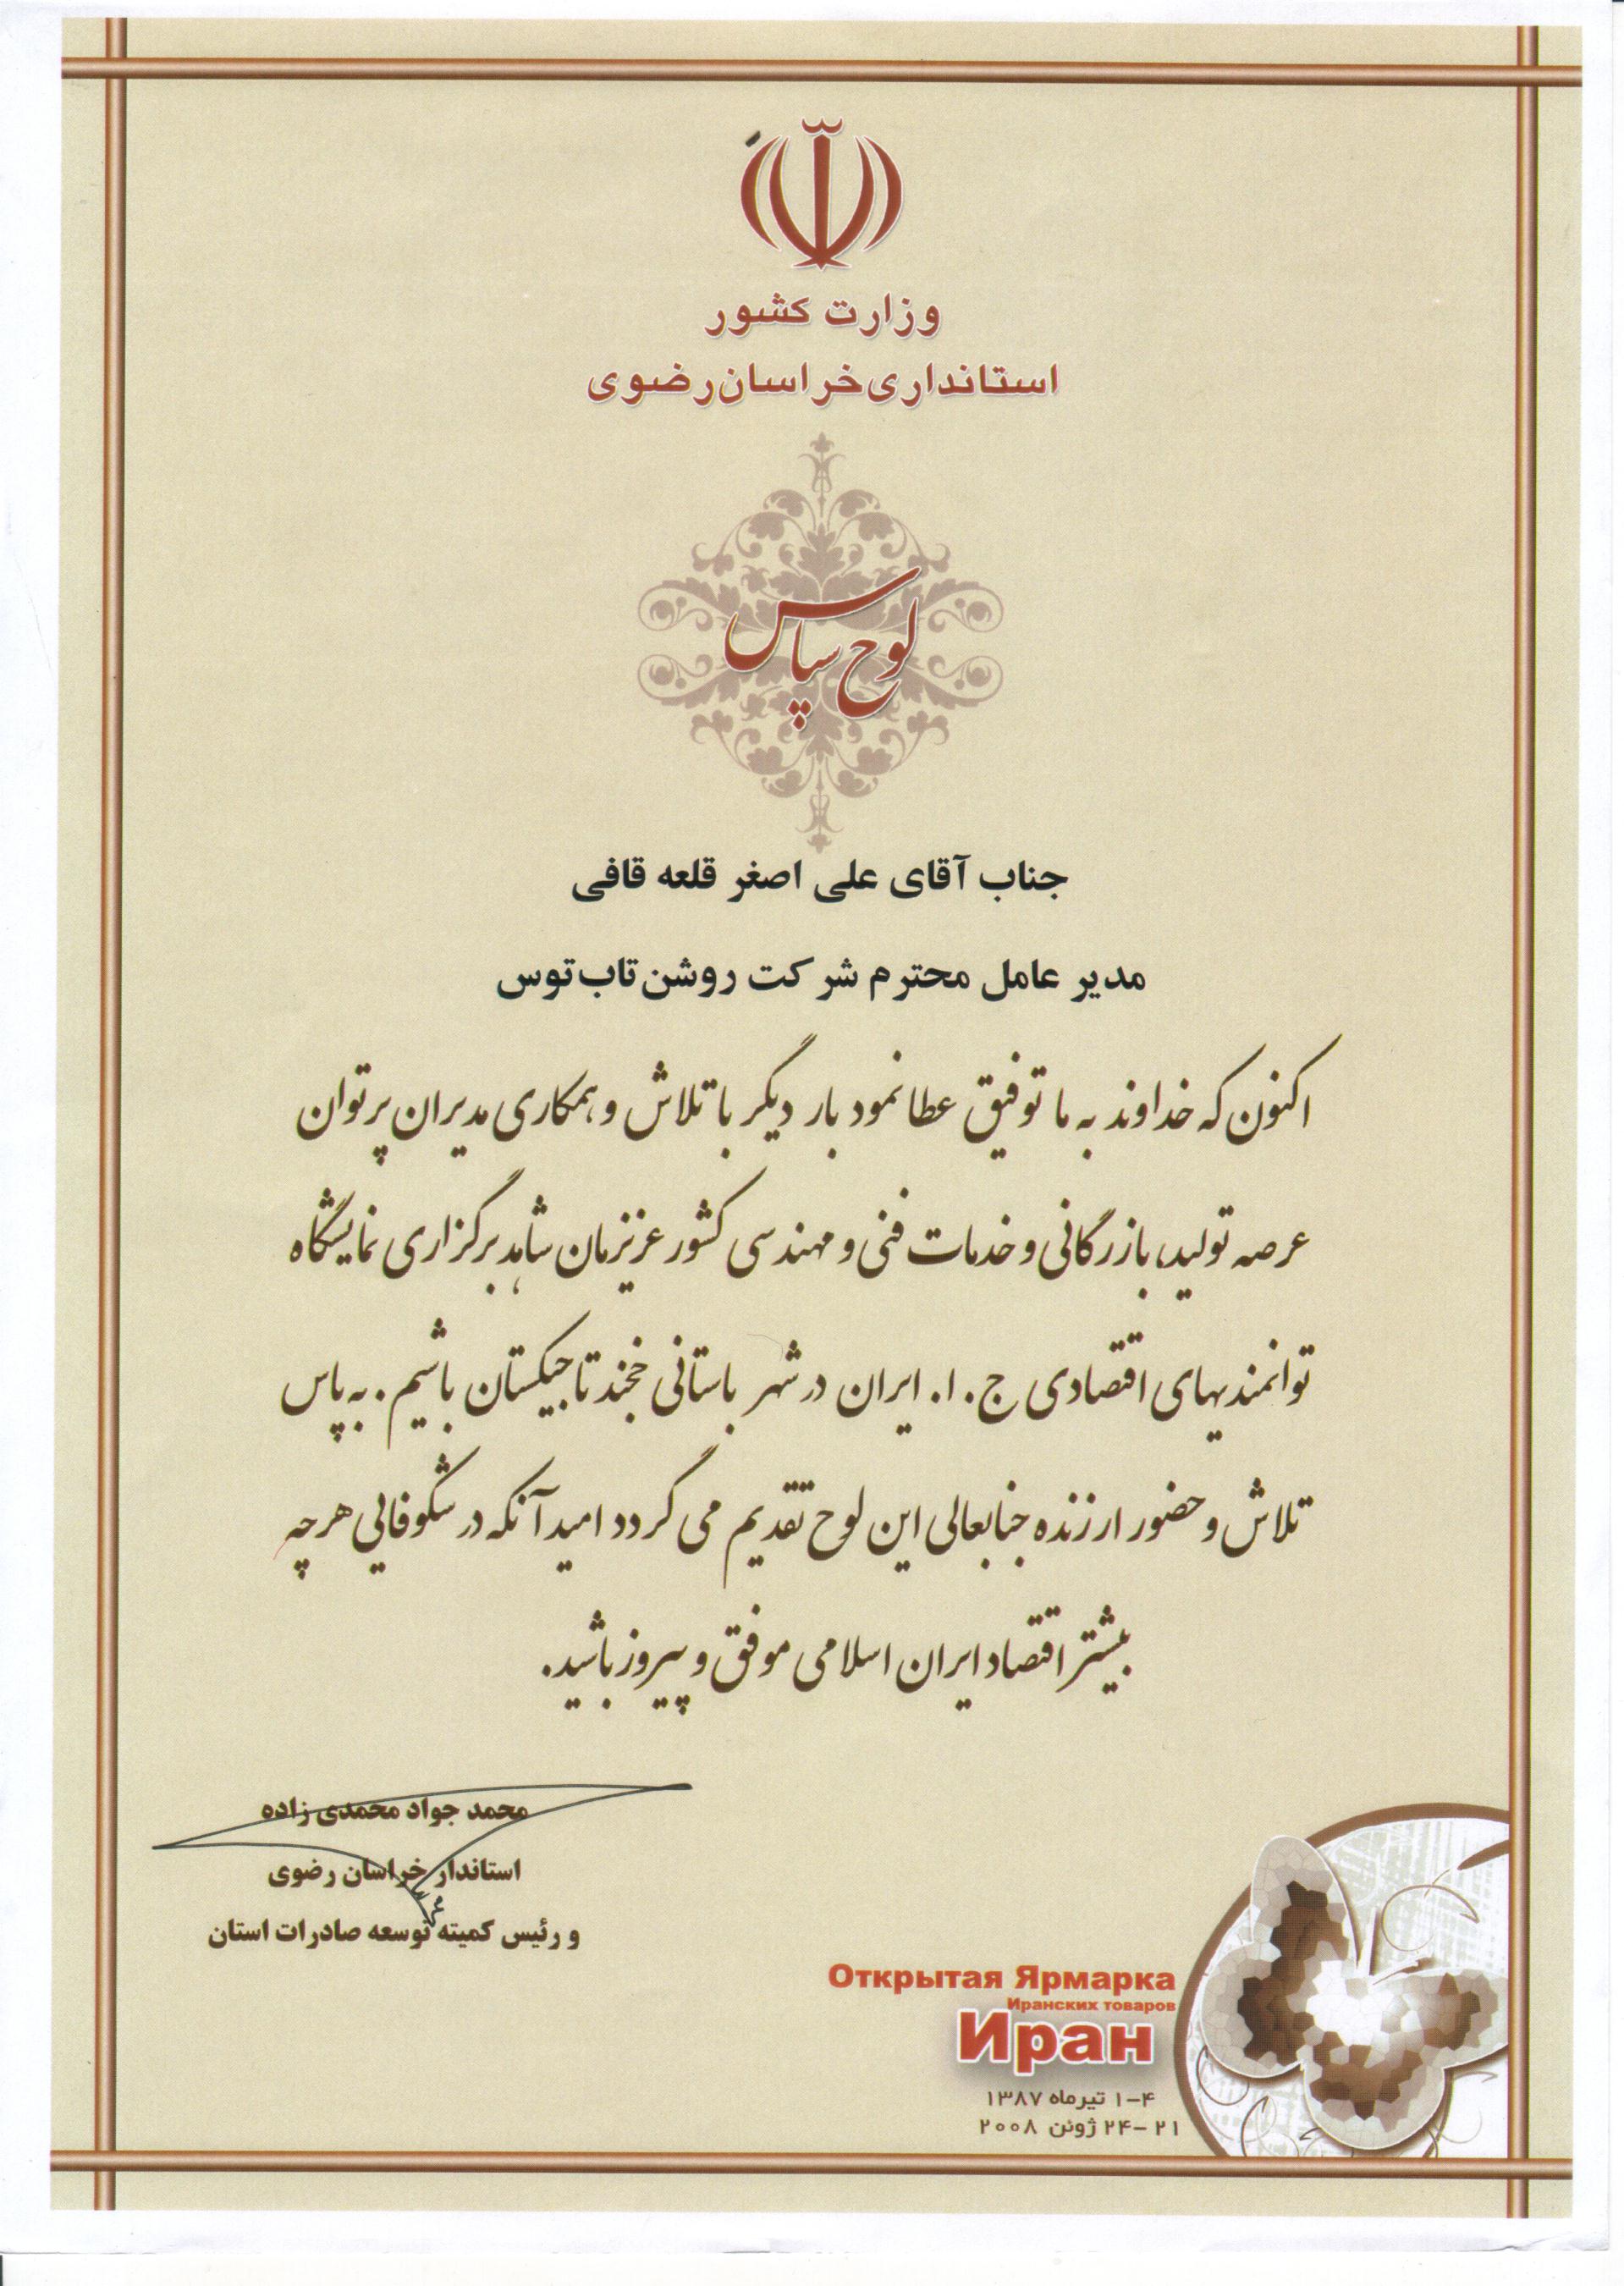 وزارت کشور
استانداری خراسان رضوی
لوح سپاس
جناب آقای علی اصغر قلعه قافی
مدیر عامل محترم شرکت روشن تاب توس
اکنون که خداوند به ما توفیق عطا نمود بار دیگر با تلاش و همکاری مدیران پر توان
عرصه تولید، بازرگانی و خدمات فنی و مهندسی کشور عزیزمان شاهد برگزاری نمایشگاه
توانمندیهای اقتصادی ج.ا. ایران در شهر باستانی خجند تاجیکستان باشیم. به پاس
تلاش و حضور ارزنده جنابعالی این لوح تقدیم می گردد امید آنکه در شکوفایی هر چه
بیشتر اقتصاد ایران اسلامی موفق و پیروز باشید.
محمد جواد محمدی زاده
استاندار خراسان رضوی
و رئیس کمیته توسعه صادرات استان
Открытая Ярмарка
Иранских товаров
Иран
۱-۴ تیرماه ۱۳۸۷
۲۱-۲۴ ژوئن ۲۰۰۸